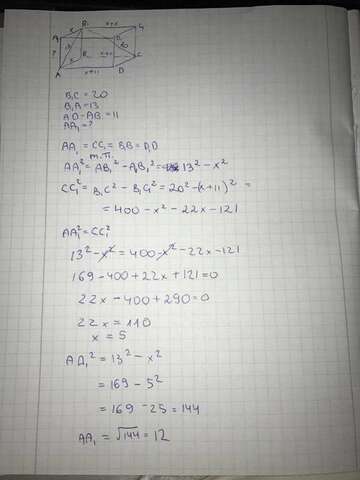 B₁ x+11 C₁
x
A₁ D₁
? 13 20
B x+11 C
x
A x+11 D
B₁C = 20
B₁A = 13
AD - AB = 11
AA₁ = ?
AA₁ = CC₁ = B₁B = D₁D
т.П.
AA₁² = AB₁² - A₁B₁² = 13² - x²
CC₁² = B₁C² - B₁C₁² = 20² - (x+11)² =
= 400 - x² - 22x - 121
AA₁² = CC₁²
13² - x² = 400 - x² - 22x - 121
169 - 400 + 22x + 121 = 0
22x - 400 + 290 = 0
22x = 110
x = 5
AД₁² = 13² - x²
= 169 - 5²
= 169 - 25 = 144
AA₁ = √144 = 12